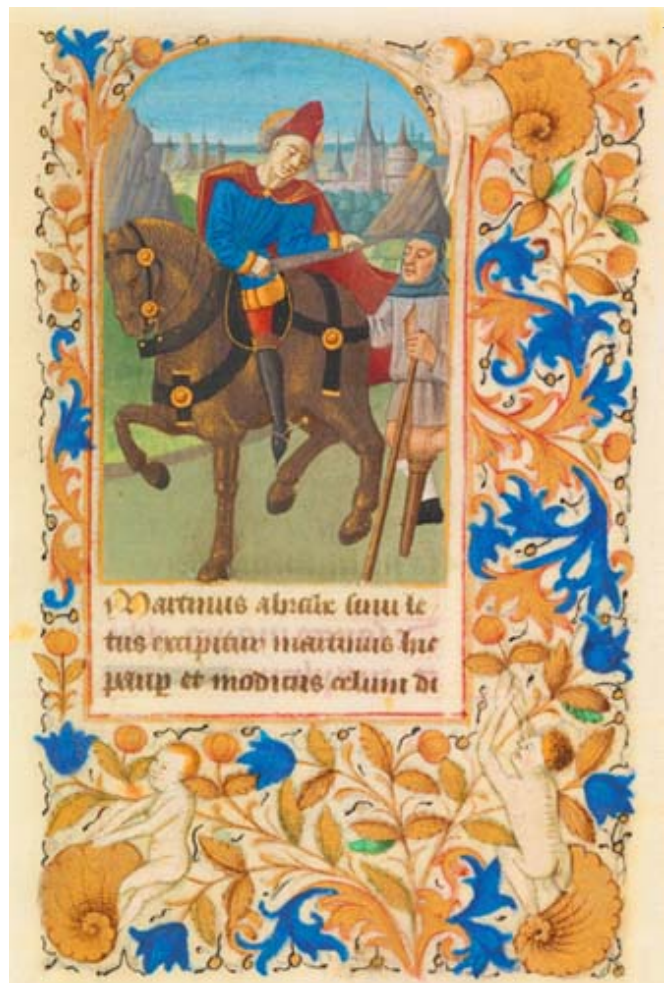 Martinus abrahe sinu le
tus excipitur martinus hic
paup et modicus celum di